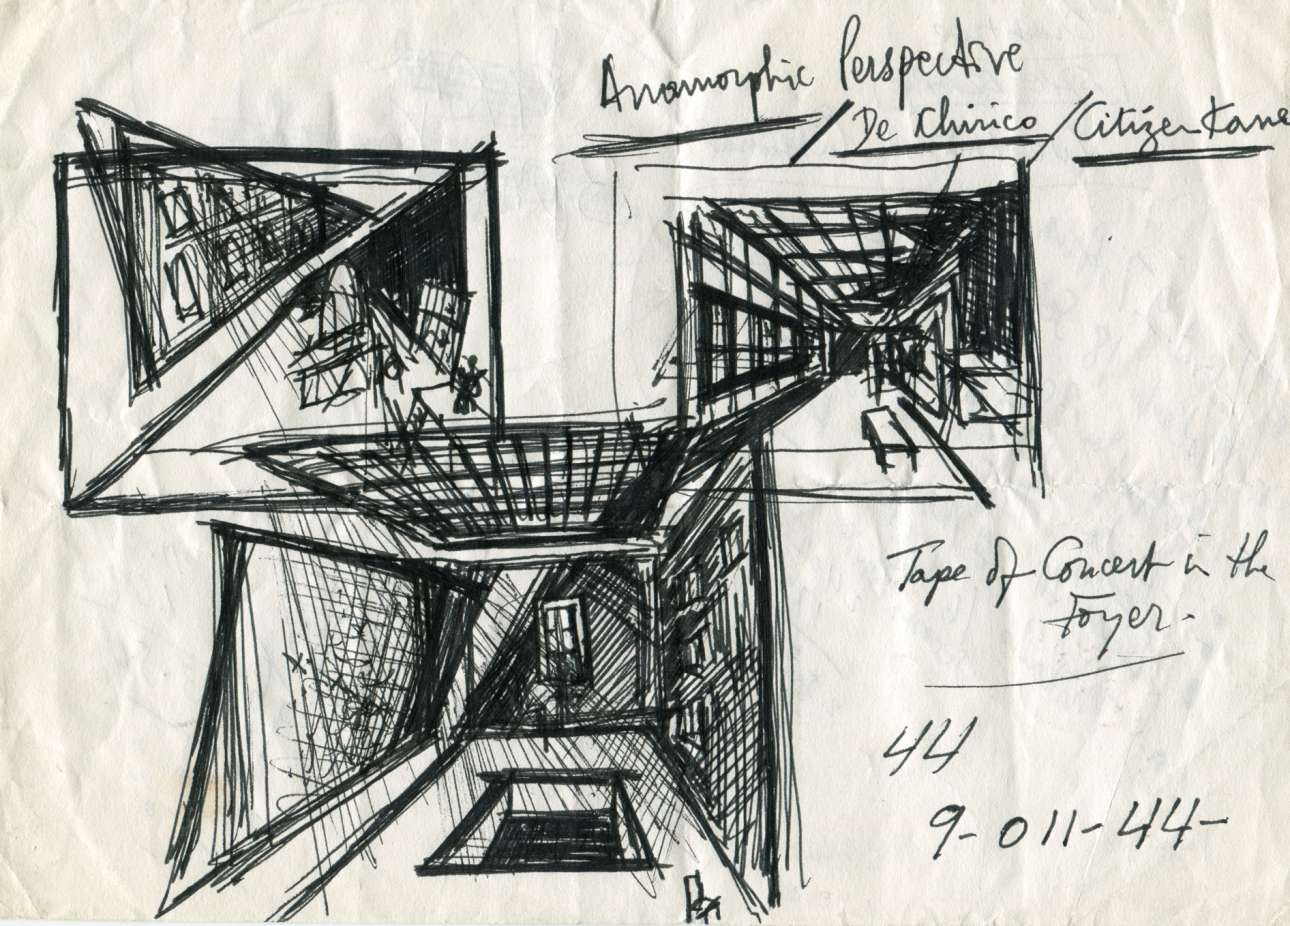 Anamorphic Perspective
/ De Chirico / Citizen Kane
Tape of Concert in the
Foyer.
44
9-011-44-